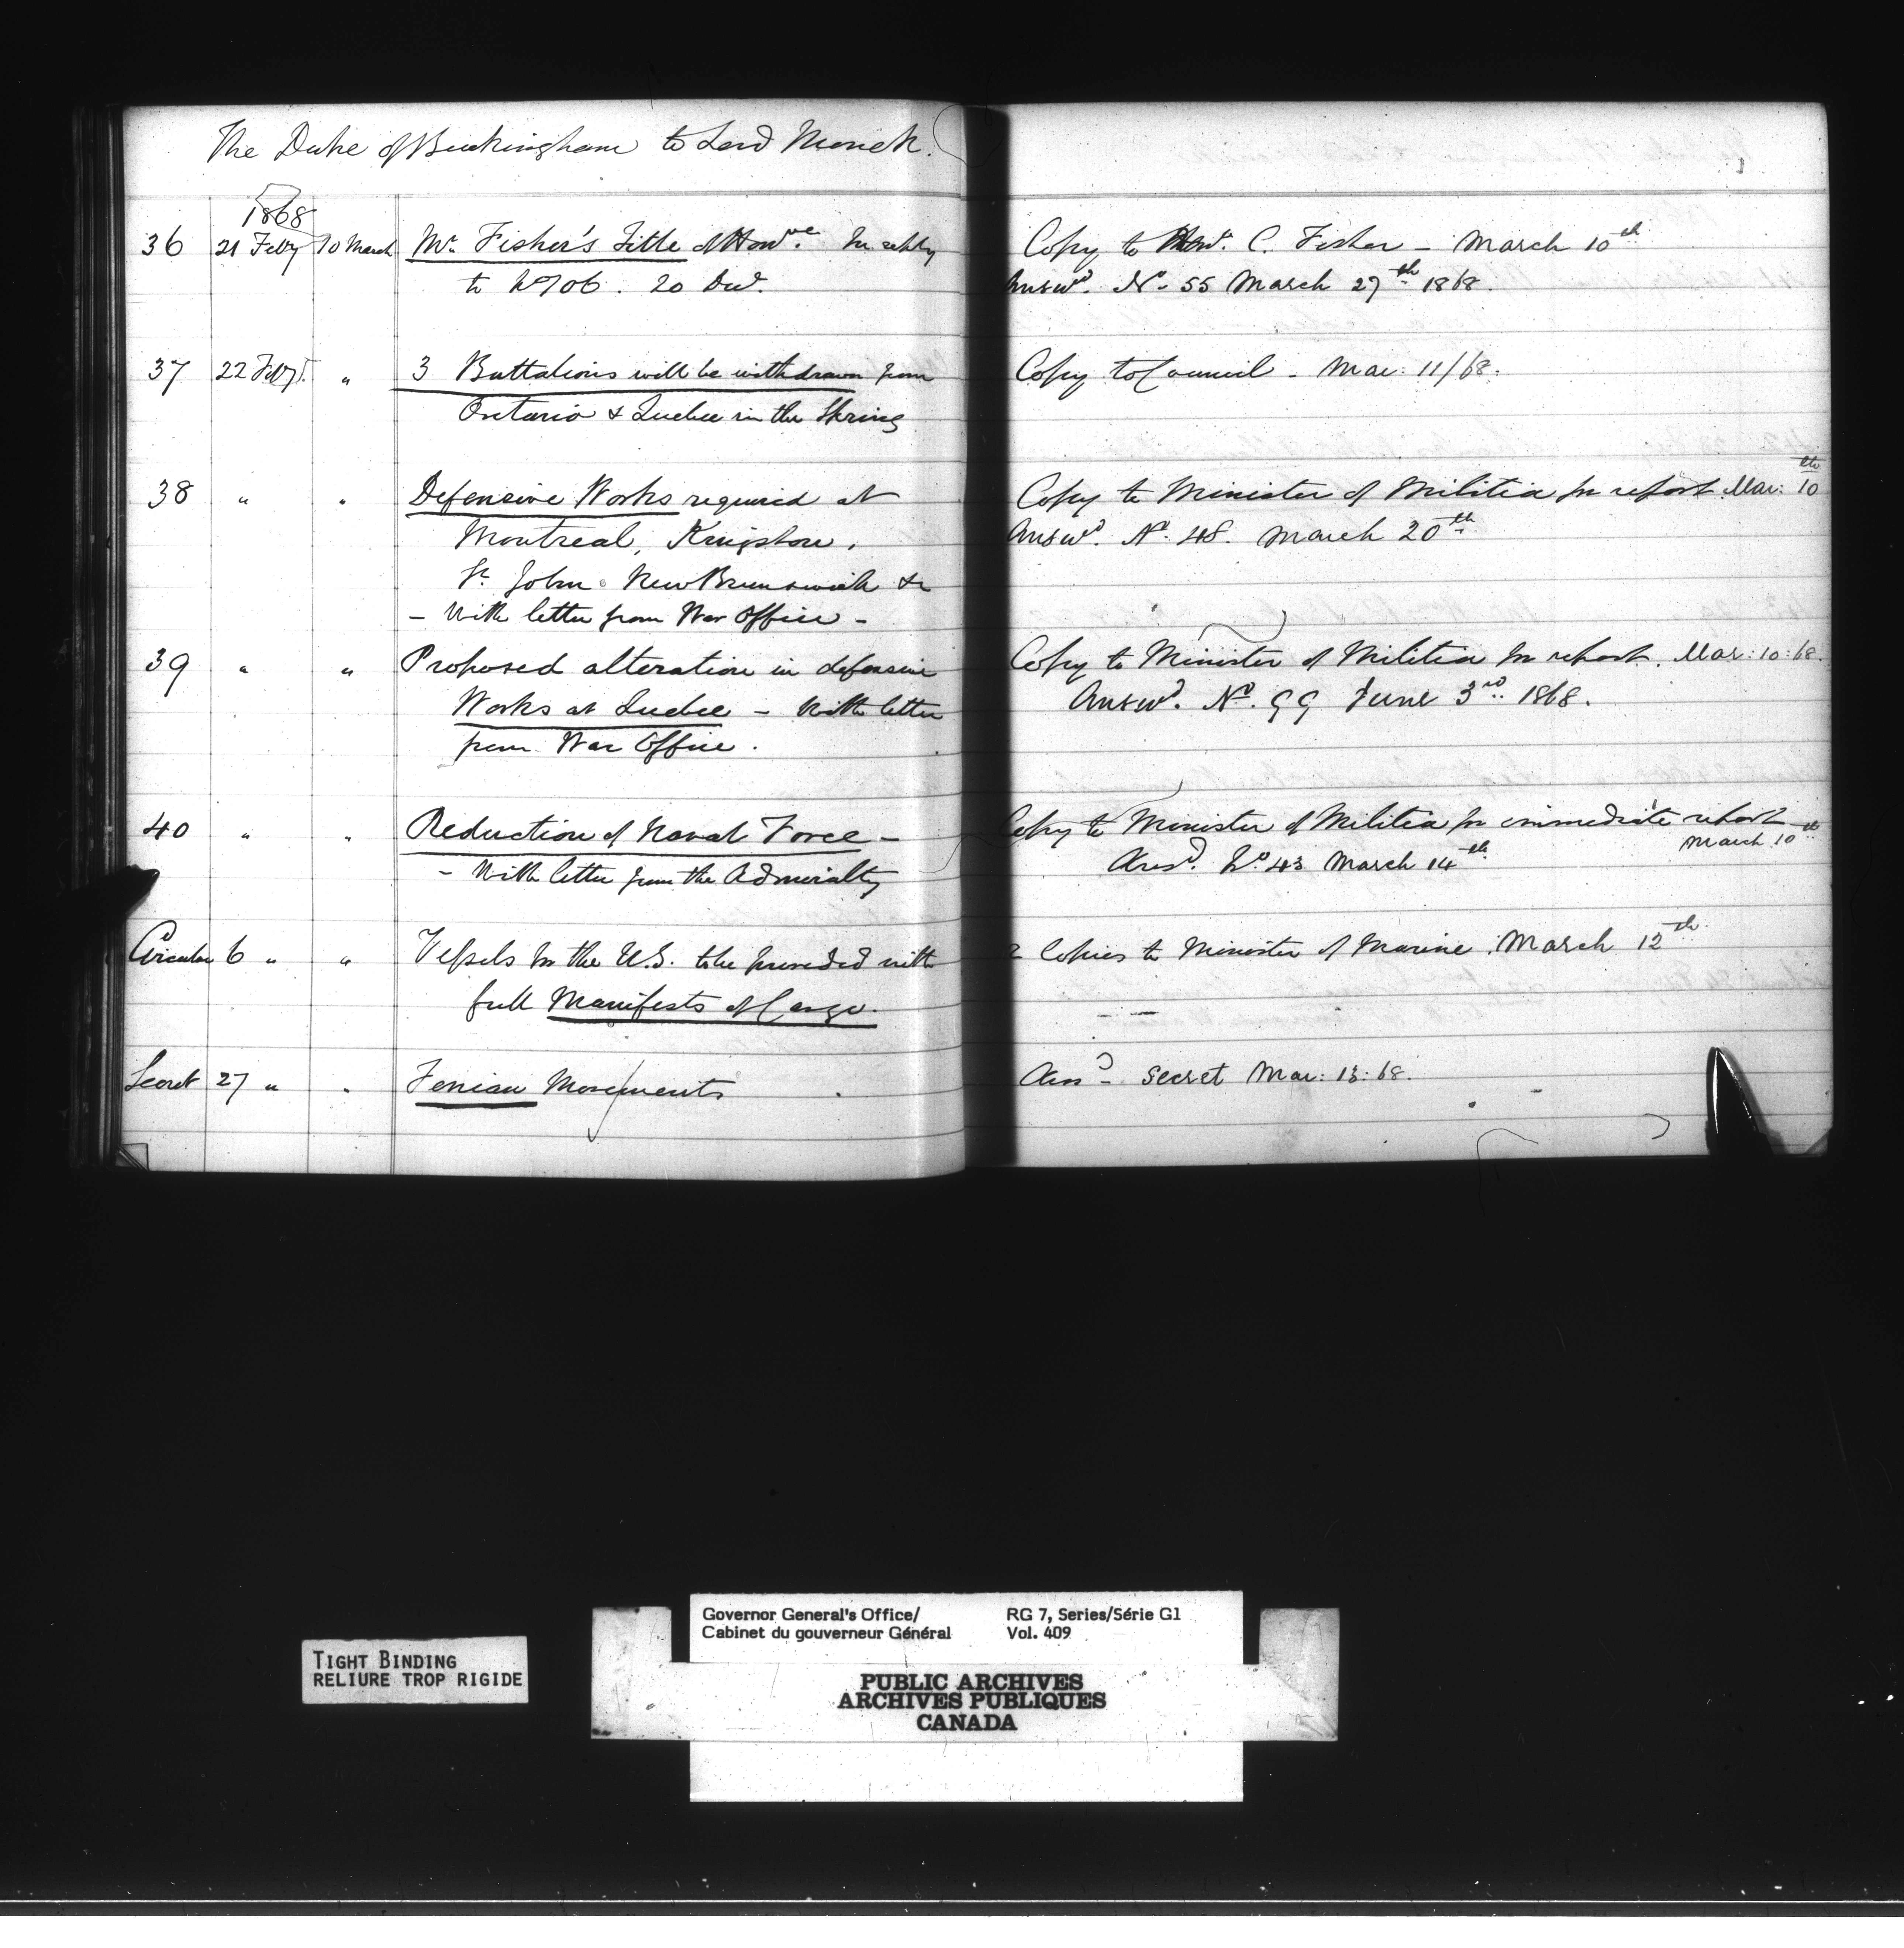 The Duke of Buckingham to Lord Monck.
1868
36 21 Feby 10 March Mr. Fisher's Title of Honble. In reply
to No 106. 20 Dec.
Copy to Honl. C. Fisher - March 10th
Answd. No. 55 March 27th 1868.
37 22 Feby. " 3 Battalions will be withdrawn from
Ontario & Quebec in the Spring
Copy to Council - Mar: 11/68.
38 " " Defensive Works required at
Montreal, Kingston,
St. John New Brunswick &c
- With letter from War Office -
Copy to Minister of Militia for report. Mar: 10th
Answd. No. 48. March 20th
39 " " Proposed alteration in defensive
Works at Quebec - With letter
from War Office.
Copy to Minister of Militia for report. Mar: 10: 68.
Answd. No. 99 June 3rd. 1868.
40 " " Reduction of Naval Force -
- With letter from the Admiralty
Copy to Minister of Militia for immediate report
March 10th
Ansd. No. 43 March 14th
Circular 6 " " Vessels for the U.S. to be provided with
full Manifests of Cargo.
2 Copies to Minister of Marine. March 12th
Secret 27 " " Fenian Movements
Ansd - Secret Mar: 13: 68.
TIGHT BINDING
RELIURE TROP RIGIDE
Governor General's Office/
Cabinet du gouverneur Général
RG 7, Series/Série G1
Vol. 409
PUBLIC ARCHIVES
ARCHIVES PUBLIQUES
CANADA